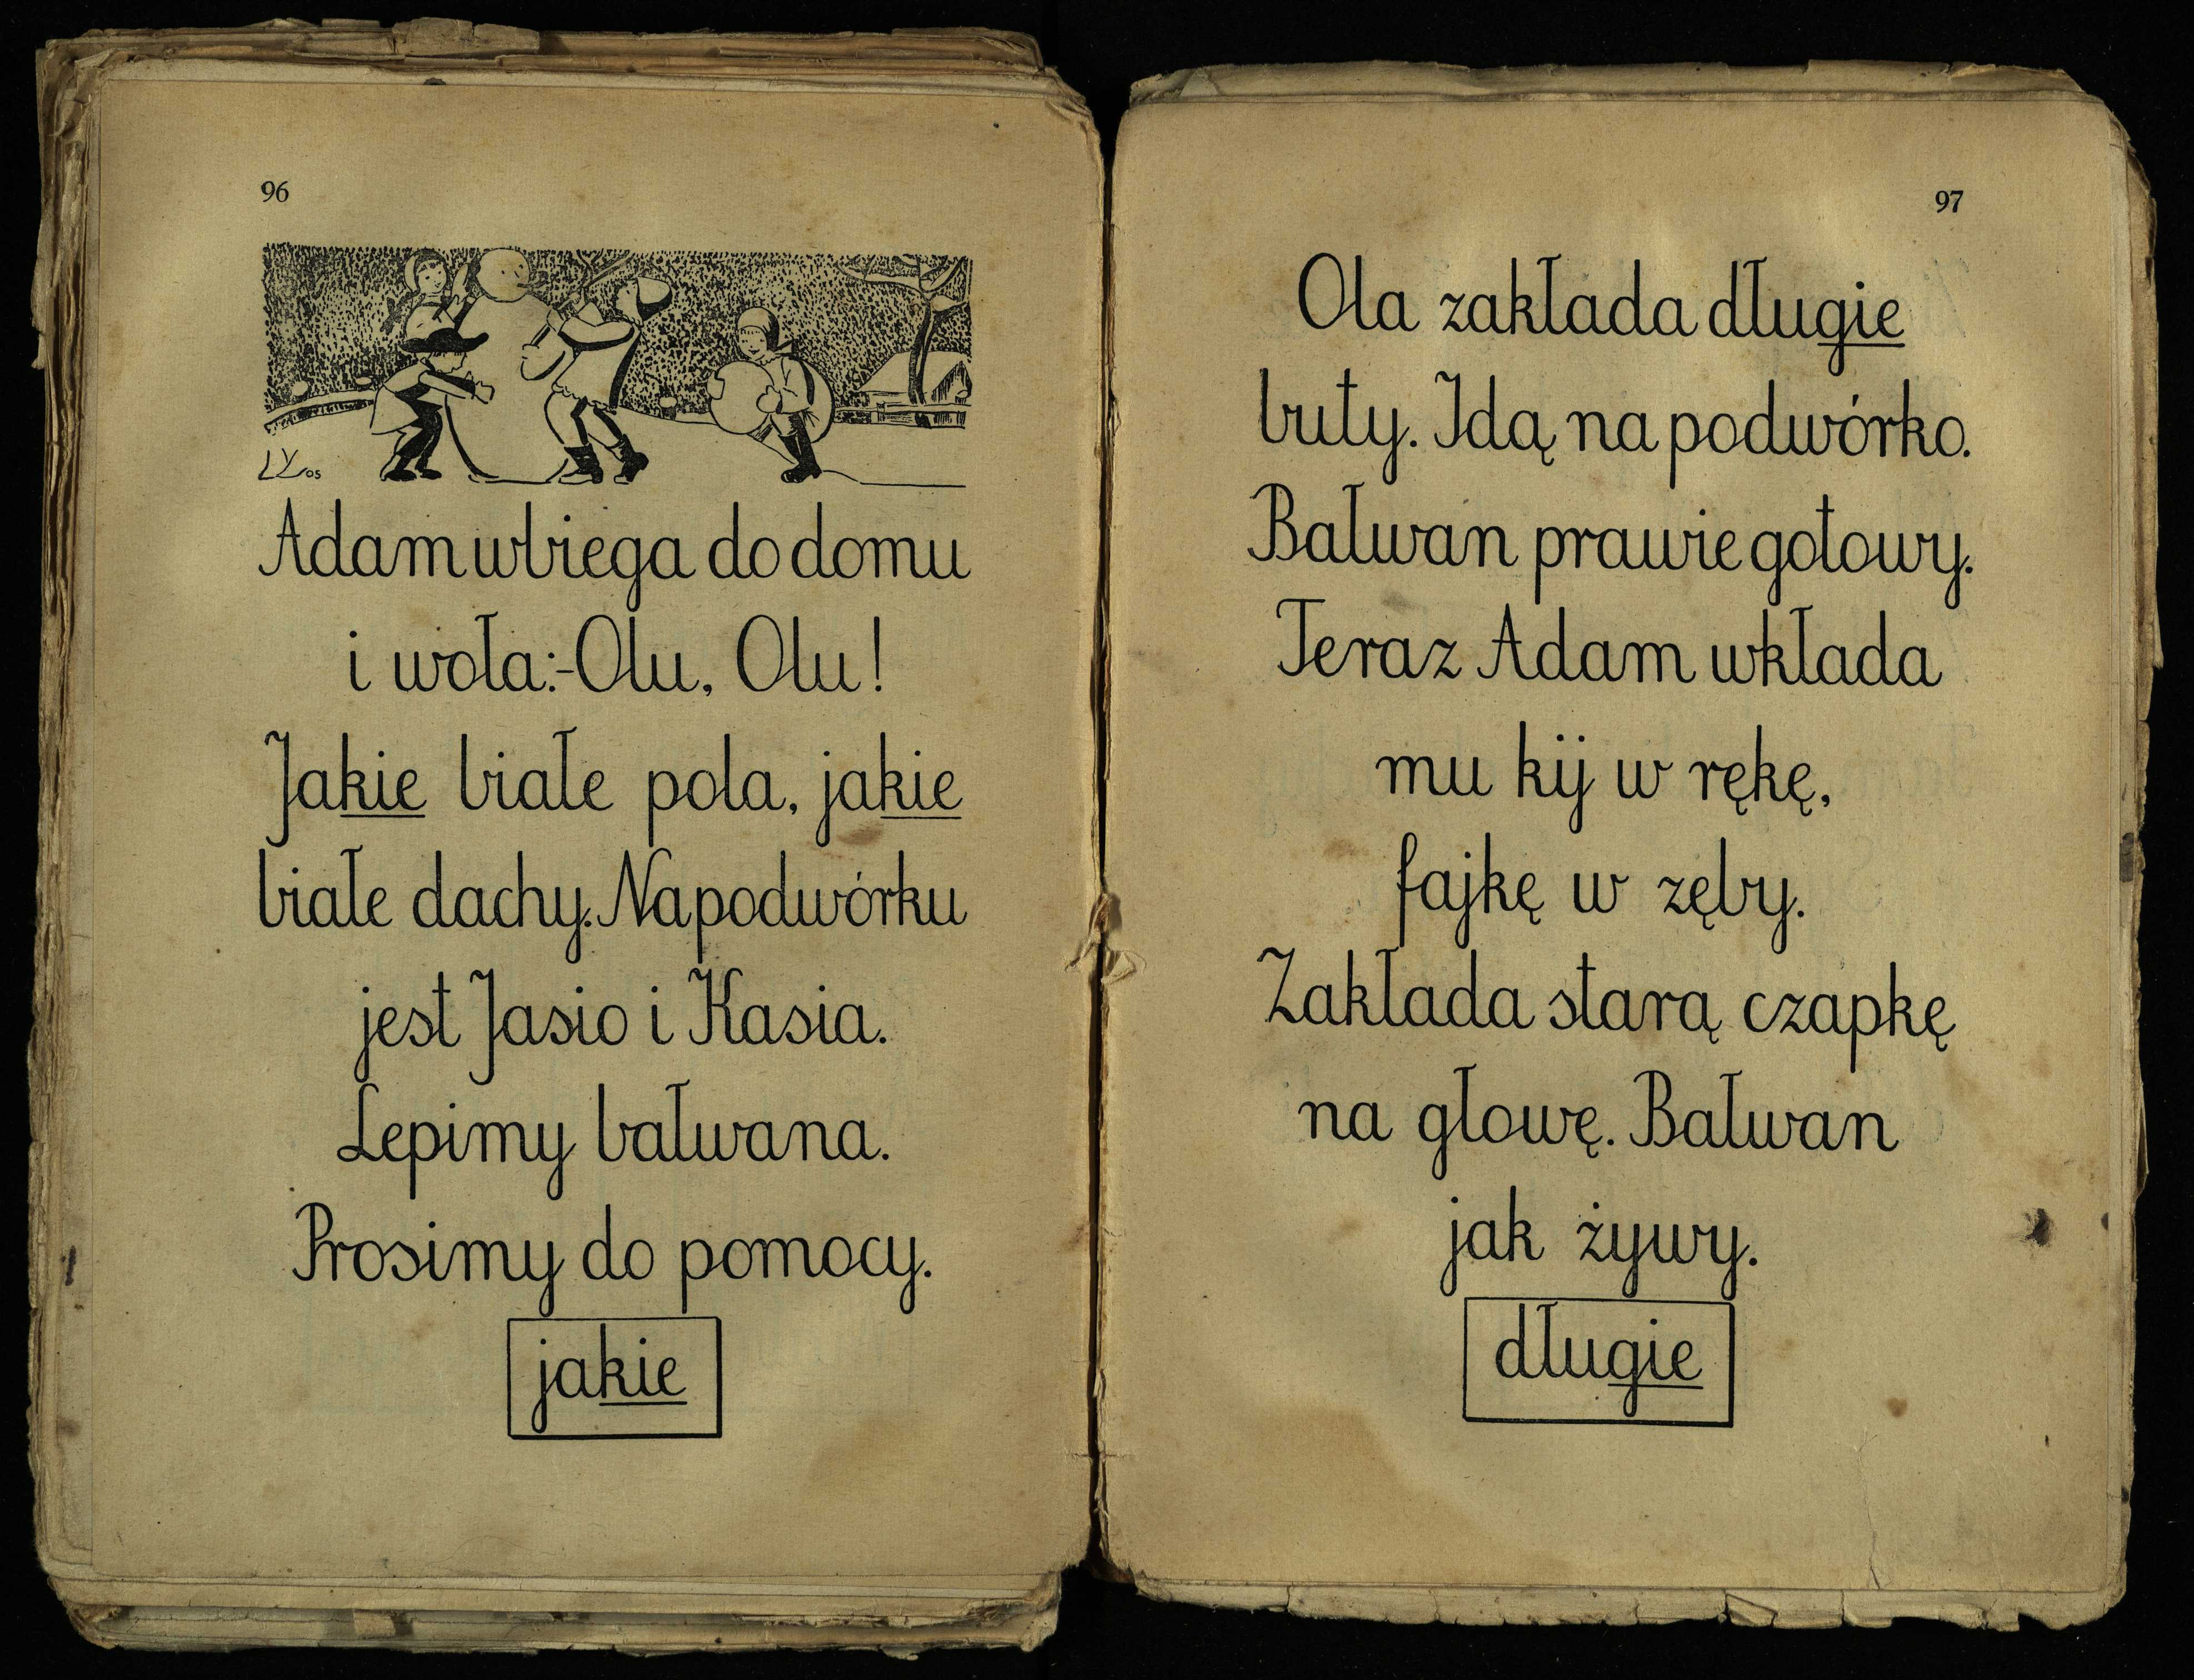 96
Adam wbiega do domu
i woła:-Olu, Olu!
Jakie białe pola, jakie
białe dachy. Na podwórku
jest Jasio i Kasia.
Lepimy bałwana.
Prosimy do pomocy.
jakie
97
Ola zakłada długie
buty. Idą na podwórko.
Bałwan prawie gotowy.
Teraz Adam wkłada
mu kij w rękę,
fajkę w zęby.
Zakłada starą czapkę
na głowę. Bałwan
jak żywy.
długie